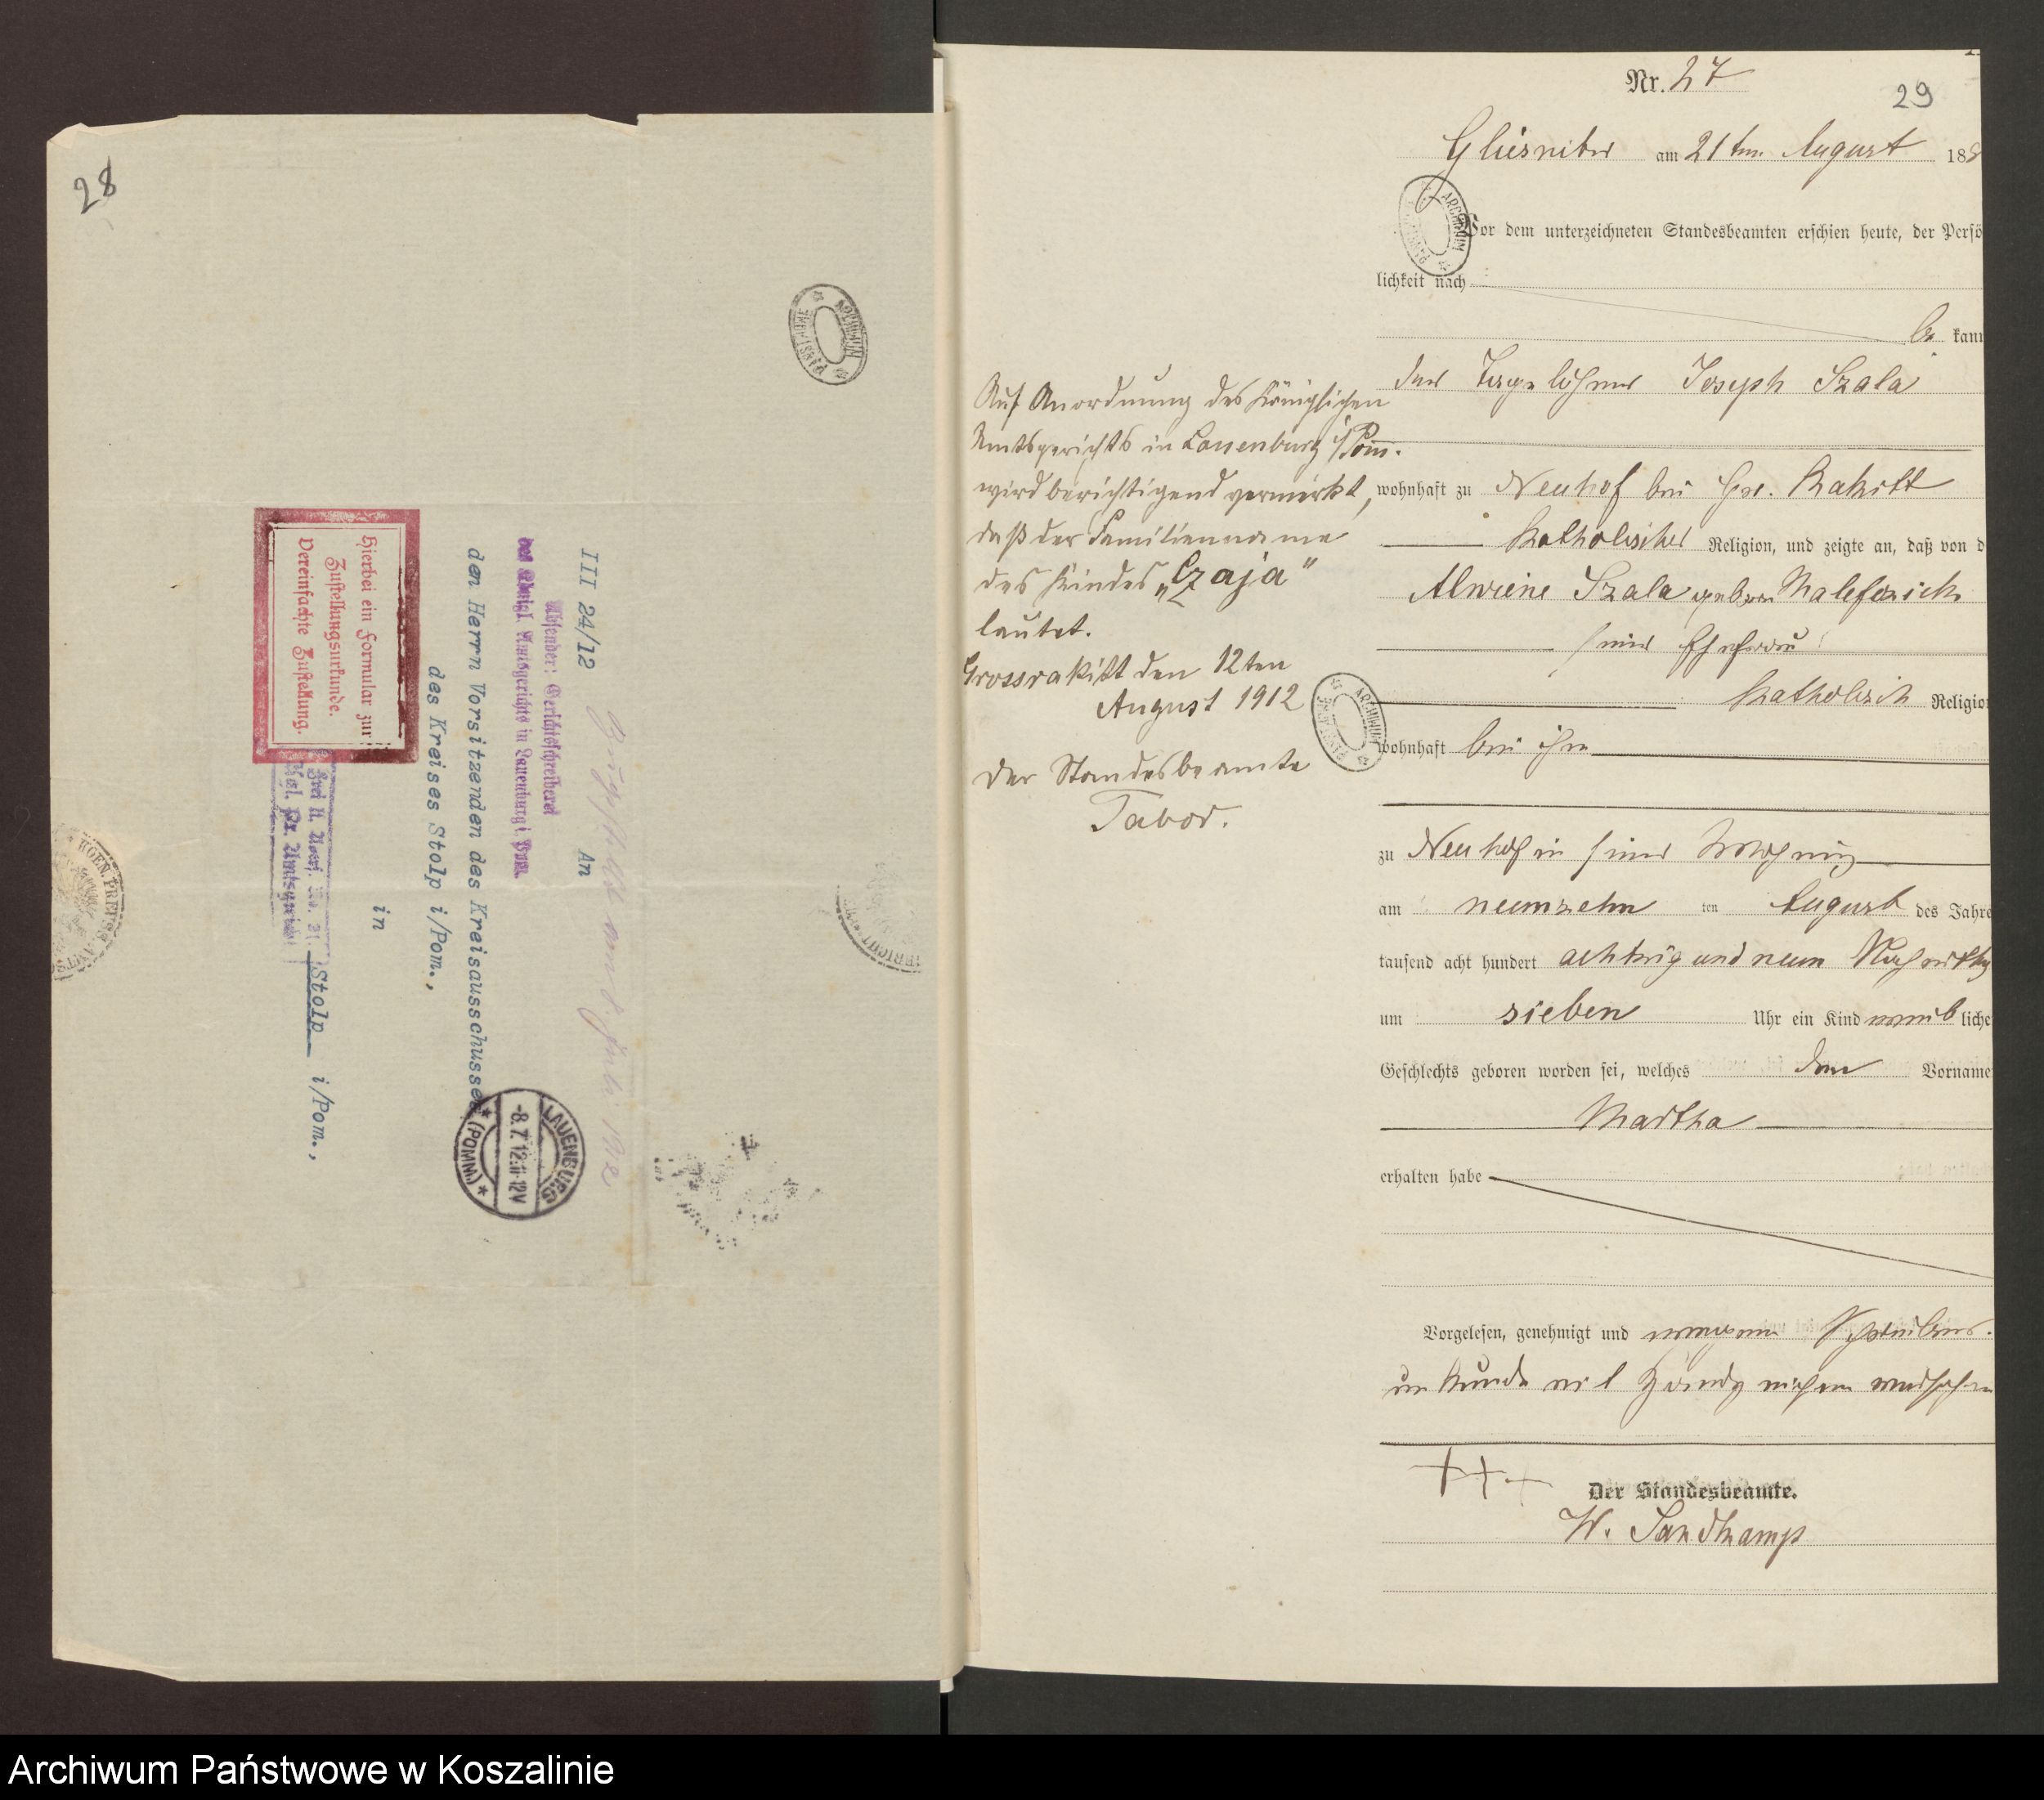 28
III 24/12
Absender: Gerichtsschreiberei
des Königl. Amtsgerichts in Lauenburg i. Pom.
An
den Herrn Vorsitzenden des Kreisausschusses
des Kreises Stolp i/Pom.,
in
Stolp i/Pom.,
Hierbei ein Formular zu
Zustellungsurkunde.
Vereinfachte Zustellung.
Frei
Kgl. Pr. Amtsgericht
LAUENBURG
-8.7.12.11-12V
* (POMM) *
ARCHIWUM
PAŃSTWOWE
Nr. 27
29
Gliesnitz am 21ten August 188
Vor dem unterzeichneten Standesbeamten erschien heute, der Persö
lichkeit nach
be kann
der Tagelöhner Joseph Szala
wohnhaft zu Neuhof bei Gr. Rakitt
katholischer Religion, und zeigte an, daß von d
Alwine Szala geboren
seiner Ehefrau
katholisch Religio
wohnhaft bei ihm
zu Neuhof in seiner Wohnung
am neunzehn ten August des Jahre
tausend acht hundert achtzig und neun Nachmittag
um sieben Uhr ein Kind weib liche
Geschlechts geboren worden sei, welches den Vorname
Martha
erhalten habe
Vorgelesen, genehmigt und wegen Schreibens-
unkunde mit Handzeichen versehen
+++
Der Standesbeamte.
W. Sandkamp
Auf Anordnung des Königlichen
Amtsgerichts in Lauenburg i/Pom.
wird berichtigend vermerkt,
daß der Familienname
des Kindes „Czaja"
lautet.
Grossrakitt den 12ten
August 1912
Der Standesbeamte
Tabor.
ARCHIWUM
PAŃSTWOWE
Archiwum Państwowe w Koszalinie